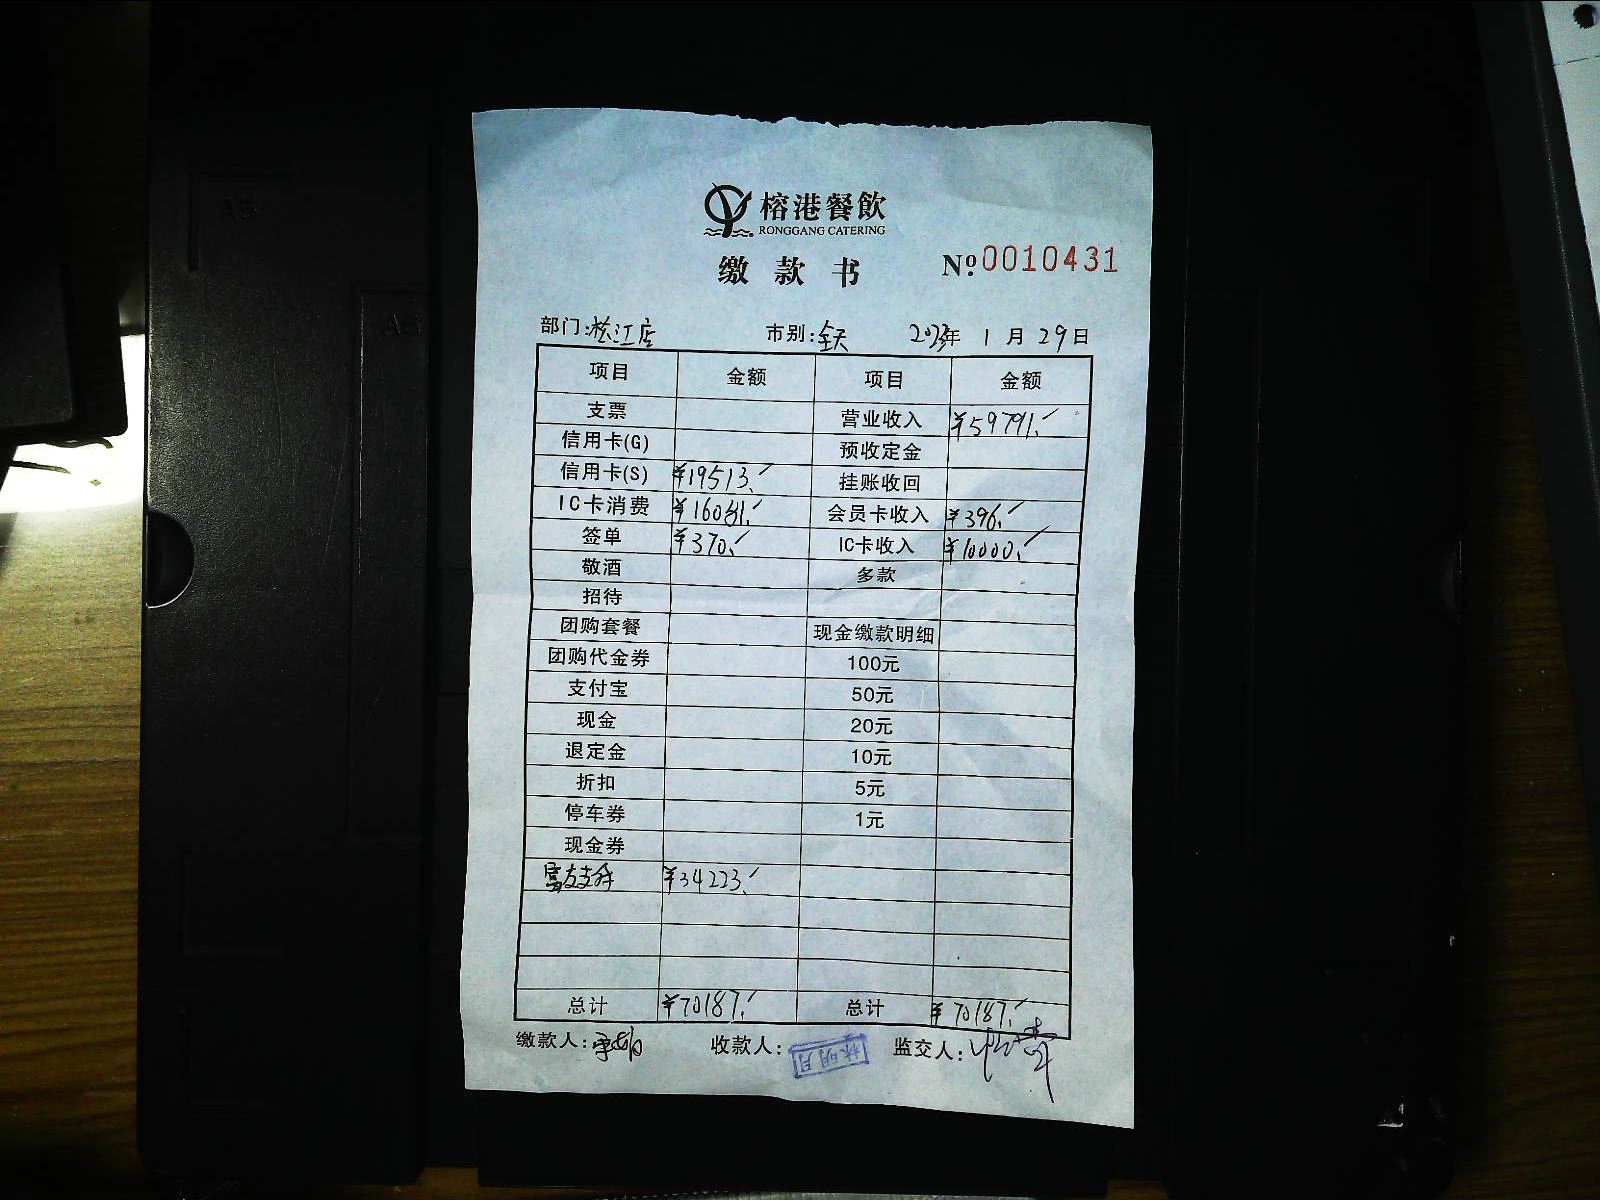 榕港餐飲
RONGGANG CATERING
缴款书 №0010431
部门:松江店 市别:全天 2023年 1月29日
项目 金额 项目 金额
支票 营业收入 ¥59791.
信用卡(G) 预收定金
信用卡(S) ¥19513. 挂账收回
IC卡消费 ¥16081. 会员卡收入 ¥396.
签单 ¥370. IC卡收入 ¥10000.
敬酒 多款
招待
团购套餐 现金缴款明细
团购代金券 100元
支付宝 50元
现金 20元
退定金 10元
折扣 5元
停车券 1元
现金券
富友支付 ¥34223.
总计 ¥70187. 总计 ¥70187.
缴款人: 收款人:林明月 监交人: